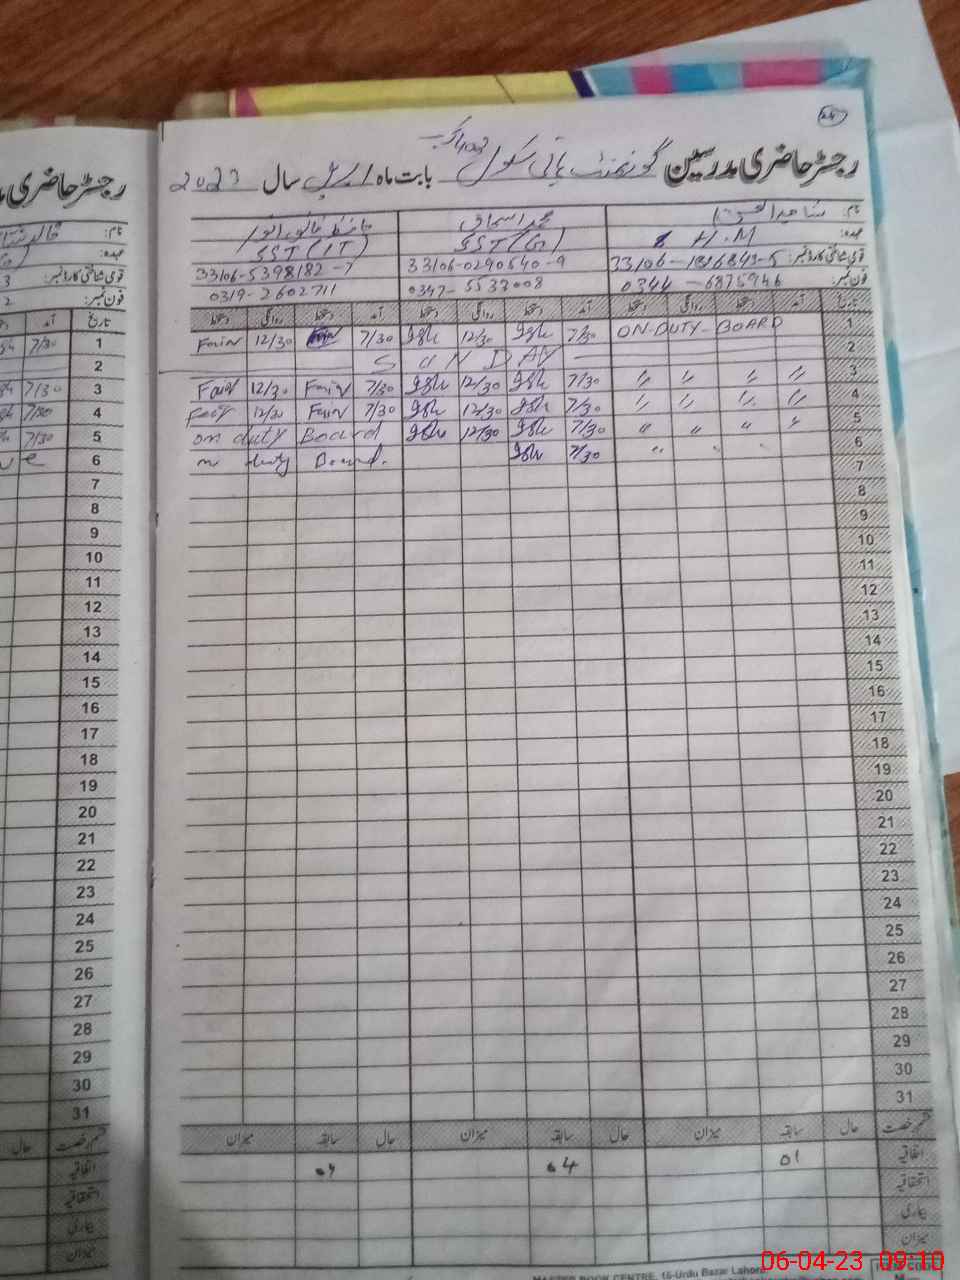 24
رجسٹر حاضری مدرسین گورنمنٹ ہائی سکول بابت ماہ اپریل سال 2023
نام: محمد اسحاق
عہدہ: H.M SST(G) SST(IT)
قومی شناختی کارڈ نمبر: 33106-0290540-9 33106-5398182-7
فون نمبر: 0344-6875946 0347-5537008 0319-2602711
تاریخ آمد دستخط روانگی دستخط آمد دستخط روانگی دستخط آمد دستخط روانگی دستخط
1 ON-DUTY-BOARD 7/30 12/30 7/30 12/30
2 SUNDAY
3 〃 〃 〃 〃 7/30 12/30 7/30 12/30
4 〃 〃 〃 〃 7/30 12/30 7/30 12/30
5 〃 〃 〃 〃 7/30 12/30 on duty Board
6 〃 〃 7/30 on duty Board.
7
8
9
10
11
12
13
14
15
16
17
18
19
20
21
22
23
24
25
26
27
28
29
30
31
قسم رخصت حال سابقہ میزان حال سابقہ میزان حال سابقہ میزان
اتفاقیہ 01 04
استحقاقیہ
بیماری
میزان
MASTER BOOK CENTRE, 16-Urdu Bazar Lahore
رجسٹر حاضری
نام:
عہدہ:
قومی شناختی کارڈ نمبر: 3
فون نمبر: 2
تاریخ آمد
1 7/30
2
3 7/30
4 7/30
5 7/30
6
7
8
9
10
11
12
13
14
15
16
17
18
19
20
21
22
23
24
25
26
27
28
29
30
31
قسم رخصت حال
اتفاقیہ
استحقاقیہ
بیماری
میزان
06-04-23 09:10